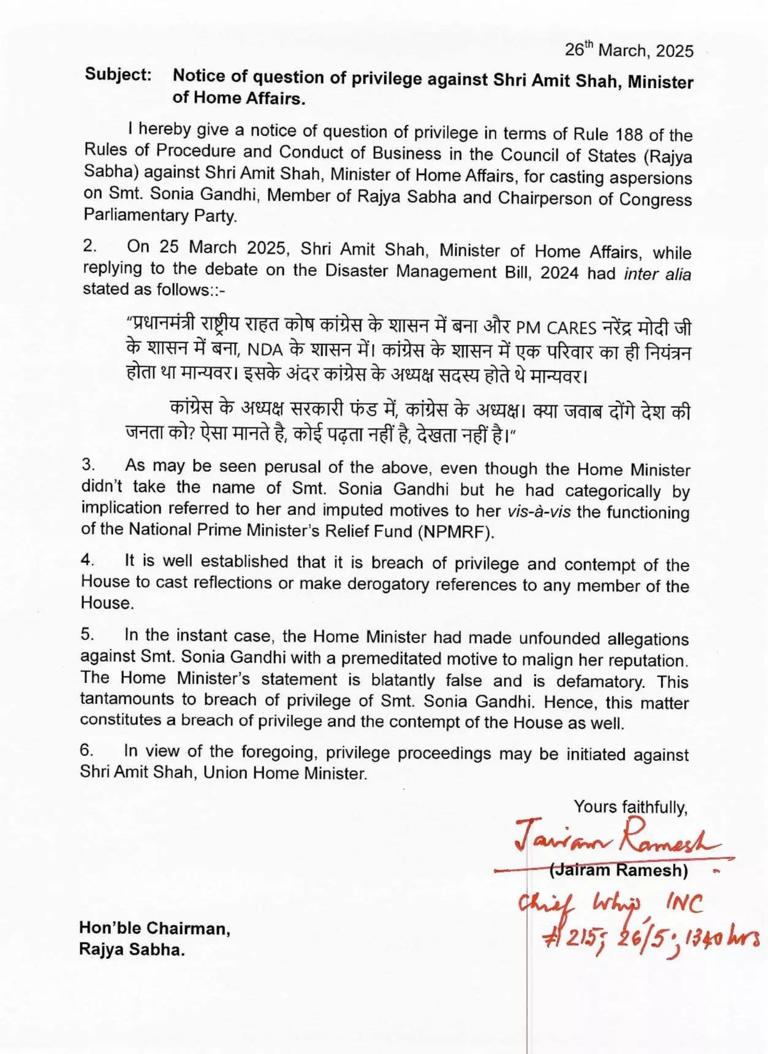 26th March, 2025
Subject: Notice of question of privilege against Shri Amit Shah, Minister
of Home Affairs.
I hereby give a notice of question of privilege in terms of Rule 188 of the
Rules of Procedure and Conduct of Business in the Council of States (Rajya
Sabha) against Shri Amit Shah, Minister of Home Affairs, for casting aspersions
on Smt. Sonia Gandhi, Member of Rajya Sabha and Chairperson of Congress
Parliamentary Party.
2. On 25 March 2025, Shri Amit Shah, Minister of Home Affairs, while
replying to the debate on the Disaster Management Bill, 2024 had inter alia
stated as follows::-
“प्रधानमंत्री राष्ट्रीय राहत कोष कांग्रेस के शासन में बना और PM CARES नरेंद्र मोदी जी
के शासन में बना, NDA के शासन में। कांग्रेस के शासन में एक परिवार का ही नियंत्रन
होता था मान्यवर। इसके अंदर कांग्रेस के अध्यक्ष सदस्य होते थे मान्यवर।
कांग्रेस के अध्यक्ष सरकारी फंड में, कांग्रेस के अध्यक्ष। क्या जवाब दोंगे देश की
जनता को? ऐसा मानते है, कोई पढ़ता नहीं है, देखता नहीं है।“
3. As may be seen perusal of the above, even though the Home Minister
didn’t take the name of Smt. Sonia Gandhi but he had categorically by
implication referred to her and imputed motives to her vis-à-vis the functioning
of the National Prime Minister’s Relief Fund (NPMRF).
4. It is well established that it is breach of privilege and contempt of the
House to cast reflections or make derogatory references to any member of the
House.
5. In the instant case, the Home Minister had made unfounded allegations
against Smt. Sonia Gandhi with a premeditated motive to malign her reputation.
The Home Minister’s statement is blatantly false and is defamatory. This
tantamounts to breach of privilege of Smt. Sonia Gandhi. Hence, this matter
constitutes a breach of privilege and the contempt of the House as well.
6. In view of the foregoing, privilege proceedings may be initiated against
Shri Amit Shah, Union Home Minister.
Yours faithfully,
Jairam Ramesh
(Jairam Ramesh)
Chief Whip, INC
# 215; 26/5; 1340 hrs
Hon’ble Chairman,
Rajya Sabha.